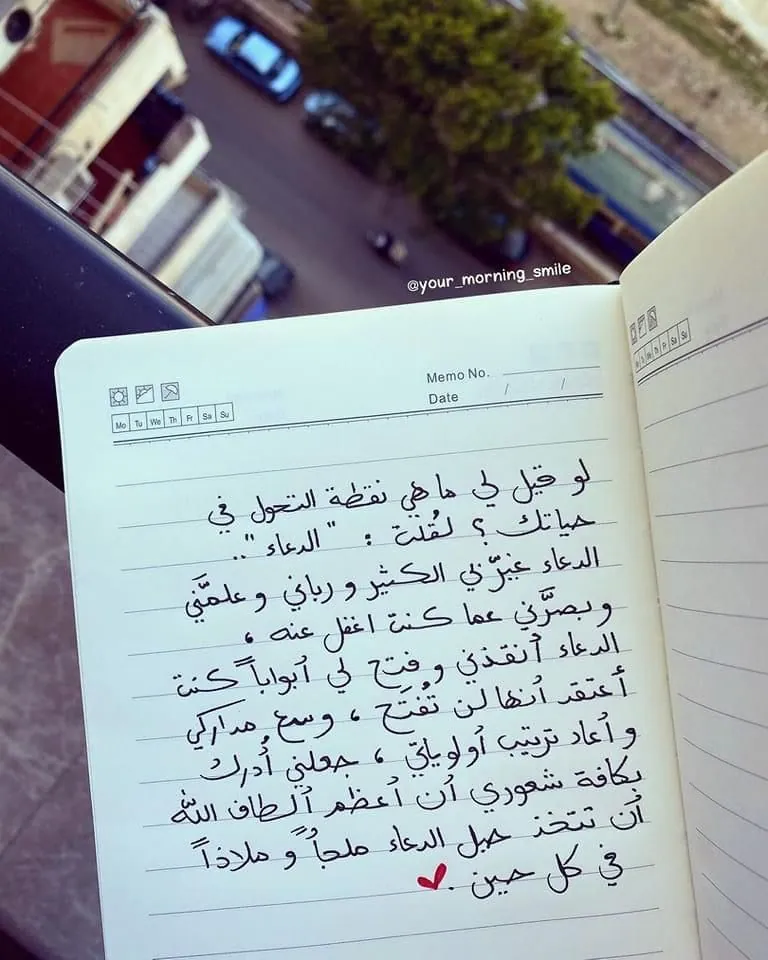 @your_morning_smile
Memo No.
Date / /
Mo Tu We Th Fr Sa Su
Mo Tu We Th Fr Sa Su
لو قيل لي ما هي نقطة التحول في
حياتك ؟ لقُلت : "الدعاء"..
الدعاء غيَّرني الكثير و رباني و علمَّني
و بصرَّني عما كنت اغفل عنه ،
الدعاء أنقذني و فتح لي أبواباً كنت
أعتقد أنها لن تُفتَح ، و سع مداركي
و أعاد ترتيب أولوياتي ، جعلني أُدرك
بكافة شعوري أن أعظم ألطاف الله
أن تتخذ حبل الدعاء ملجأً و ملاذاً
في كل حين .